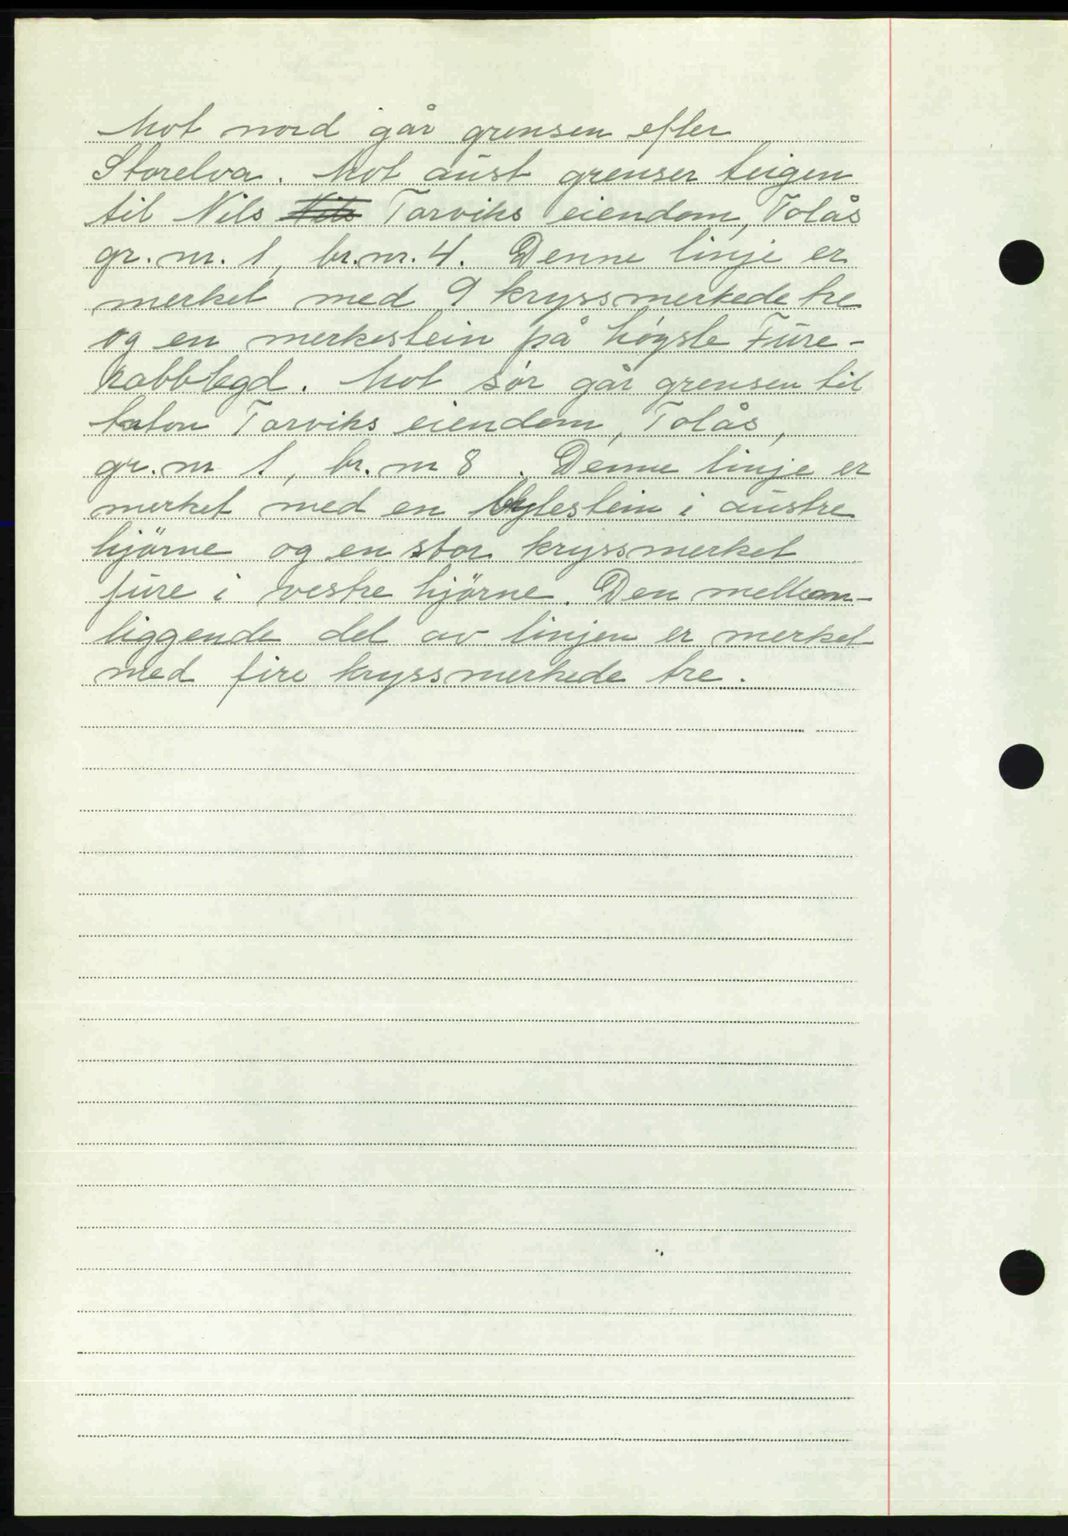 Mot nord går grensen efter
Storelva. Mot aust grenser teigen
til Nils Nils Tarviks eiendom, Tolås
gr. nr. 1, br. nr. 4. Denne linje er
merket med 9 kryssmerkede tre
og en merkestein på høgste Fure-
kabblegd. Mot sør går grensen til
Tarviks eiendom, Tolås,
gr. nr 1, br. nr 8. Denne linje er
merket med en bytestein i austre
hjörne og en stor kryssmerket
fure i vestre hjörne. Den mellom-
liggende del av linjen er merket
med fire kryssmerkede tre.